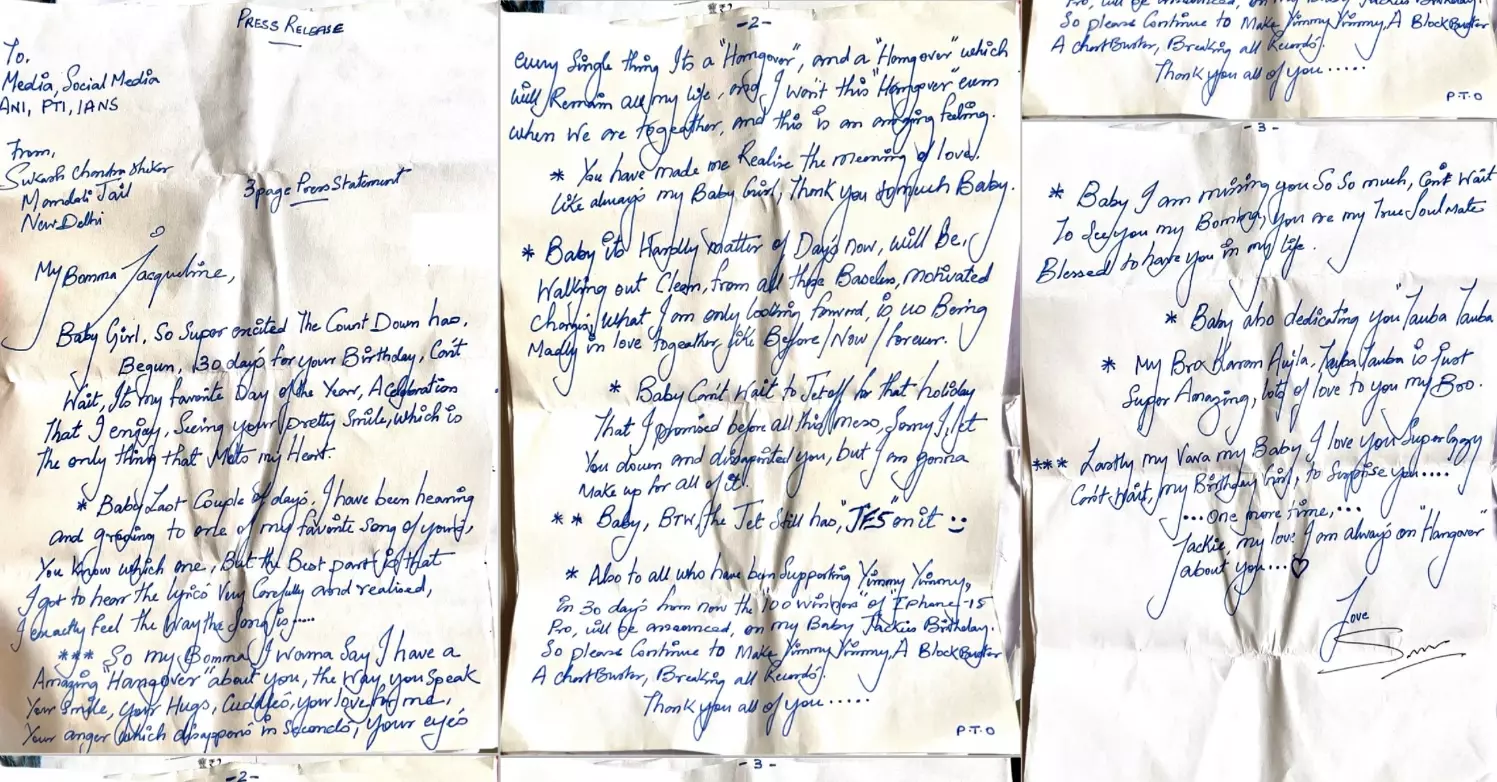 PRESS RELEASE
To,
Media, Social Media
ANI, PTI, IANS
From,
Sukash Chandrashekar
Mandoli Jail
New Delhi
3 page Press Statement
My Bomma Jacqueline,
Baby Girl, So Super excited The Count Down has,
Begun, 30 day's for your Birthday, Can't
Wait, Its my favorite Day of the Year, A Celebration
That I enjoy, Seeing your pretty Smile, which is
The only thing that Melts my Heart.
* Baby Last Couple of days, I have been hearing
and to one of my favorite Song of yours,
You Know which one, But the Best part is that
I got to hear the lyrics Very Carefully and realised,
I exactly feel the way the Song is.....
*** So my Bomma I wanna Say I have a
Amazing "Hangover" about you, the way you Speak
Your Smile, your Hugs, Cuddles, your love for me,
Your anger which disappears in Seconds, Your eyes
-2-
-2-
every Single thing Its a "Hangover", and a "Hangover" which
will Remain all my life, and I want this "Hangover" even
when we are togeather, and this is an amazing feeling.
* You have made me Realise the meaning of love.
Like always my Baby Girl, Thank you so much Baby.
* Baby its Hardly matter of Days now, will Be,
Walking out Clean, from all these Baseless, motivated
charges, What I am only looking forward, is us Being
Madly in love together, like Before / Now / forever.
* Baby Can't Wait to Jet off for that holiday
That I promised before all this mess, Sorry I let
You down and disappointed you, but I am gonna
Make up for all of it.
** Baby, BTW, the Jet Still has, "JFS" on it :)
* Also to all who have been Supporting Yimmy Yimmy,
In 30 days from now the 100 winners' of "Iphone-15
Pro, will be announced, on my Baby Jackies Birthday.
So please Continue to Make Yimmy Yimmy, A BlockBuster
A chartBuster, Breaking all Records'.
Thank you all of you......
P.T.O
-3-
So please Continue to Make Yimmy Yimmy, A BlockBuster
A chartBuster, Breaking all Records'.
Thank you all of you.....
P.T.O
-3-
* Baby I am missing you So So much, Can't Wait
To See you my Bomma, you are my True Soul Mate
Blessed to have you in my life.
* Baby also dedicating you "Tauba Tauba
* My Bro Karan Aujla, Tauba Tauba is just
Super Amazing, lots of love to you my Boo.
*** Lastly my Vara my Baby I love you Super
Can't Wait, my Birthday Girl, to Surprise you....
...One more Time,...
Jackie, my love I am always on "Hangover"
about you...♡
Love